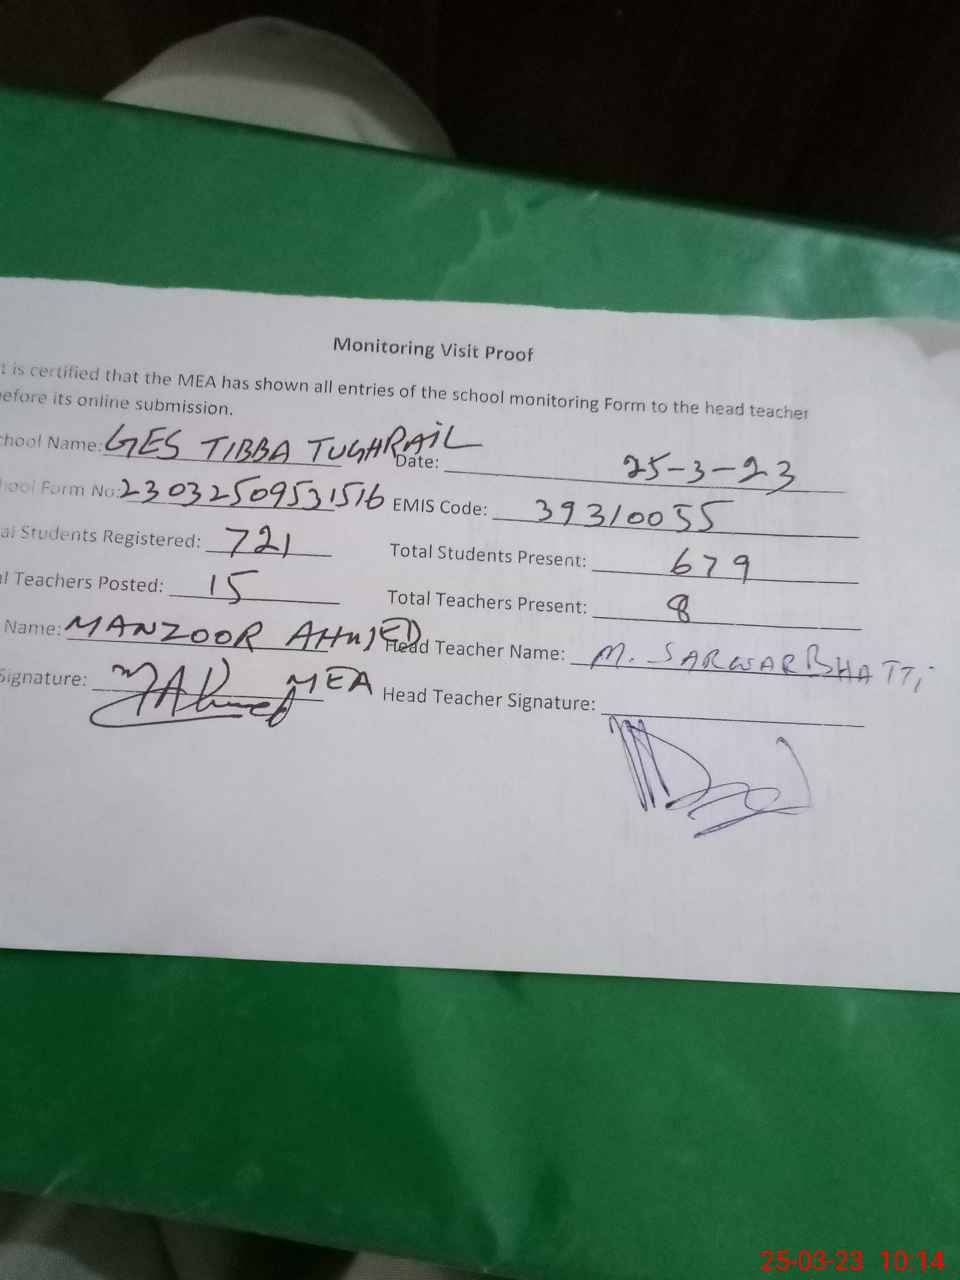 Monitoring Visit Proof
t is certified that the MEA has shown all entries of the school monitoring Form to the head teacher
before its online submission.
chool Name: GES TIBBA TUGHRAIL Date: 25-3-23
hool Form No: 23032509531516 EMIS Code: 39310055
al Students Registered: 721 Total Students Present: 679
l Teachers Posted: 15 Total Teachers Present: 8
Name: MANZOOR AHMED Head Teacher Name: M. SARWAR BHATTI
Signature: MAhmed MEA Head Teacher Signature:
25-03-23 10:14